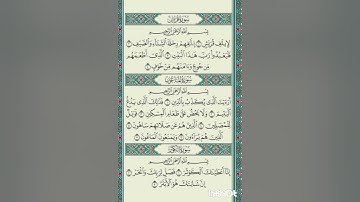 سورة قريش
بسم الله الرحمن الرحيم
لإيلاف قريش ۝ إيلافهم رحلة الشتاء والصيف ۝
فليعبدوا رب هذا البيت ۝ الذي أطعمهم
من جوع وءامنهم من خوف ۝
سورة الماعون
بسم الله الرحمن الرحيم
أرءيت الذي يكذب بالدين ۝ فذلك الذي يدع
اليتيم ۝ ولا يحض على طعام المسكين ۝ فويل
للمصلين ۝ الذين هم عن صلاتهم ساهون ۝
الذين هم يراءون ۝ ويمنعون الماعون ۝
سورة الكوثر
بسم الله الرحمن الرحيم
إنا أعطيناك الكوثر ۝ فصل لربك وانحر ۝
إن شانئك هو الأبتر ۝